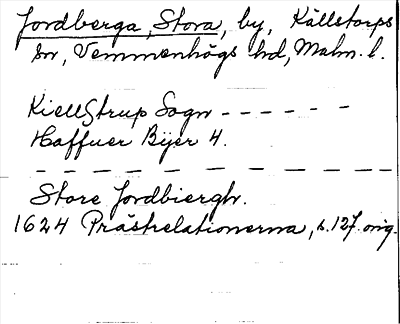 Jordberga, Stora, by, Källstorps
sn, Vemmenhögs hd, Malm. l.
Kiellstrup Sogn - - - - - -
Haffuer Byer 4.
- - - - - - - - - - - -
Store Jordbiergh.
1624 Prästrelationerna, s. 127. orig.